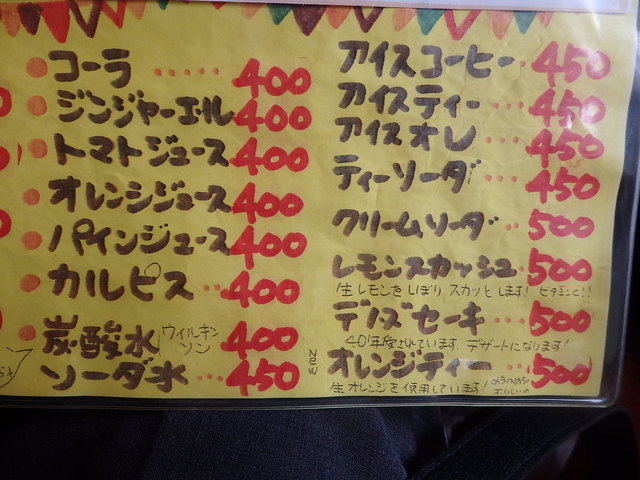 コーラ ······ 400
ジンジャーエル 400
トマトジュース 400
オレンジジュース 400
パインジュース 400
カルピス ·· 400
炭酸水 ウィルキンソン 400
ソーダ水 ··· 450
アイスコーヒー ·· 450
アイスティー ··· 450
アイスオレ ··· 450
ティーソーダ ··· 450
クリームソーダ ·· 500
レモンスカッシュ 500
生レモンをしぼり スカッとします! ビタミンC!!
ミルクセーキ ··· 500
デザートになります!
New オレンジティー ··· 500
生オレンジを使用しています!